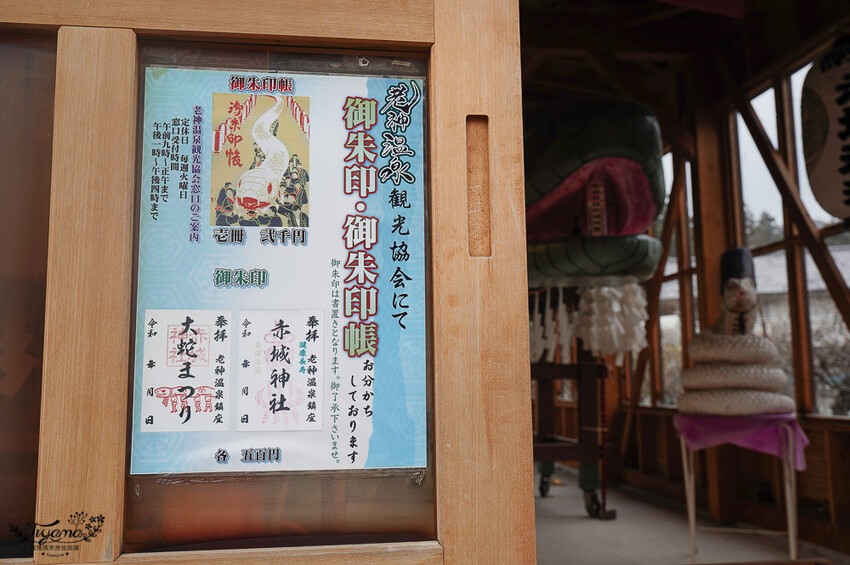 老神温泉
観光協会にて
御朱印・御朱印帳
お分かち
しております
御朱印は書置きとなります。御了承下さいませ。
御朱印帳
御朱印帳
壱冊 弐千円
老神温泉観光協会窓口のご案内
定休日 毎週火曜日
窓口受付時間
午前九時~正午まで
午後一時~午後四時まで
御朱印
奉拝 老神温泉鎮座
健康長寿
赤城神社
令和 年 月 日
奉拝 老神温泉鎮座
赤城神社
大蛇まつり
令和 年 月 日
各 五百円
Tiyama